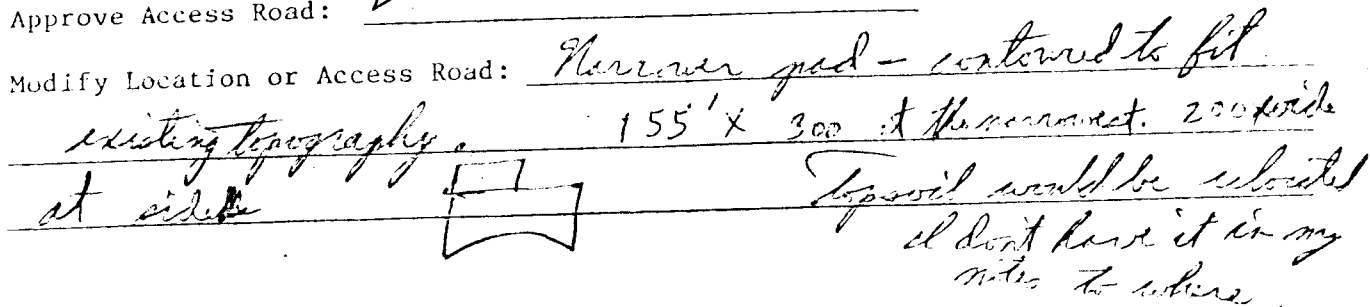 Approve Access Road:
Modify Location or Access Road: Narrower pad - contoured to fit
existing topography. 155' X 300 at the narrowest. 200 wide
at side
Topsoil would be relocated
I don't have it in my
notes to where.